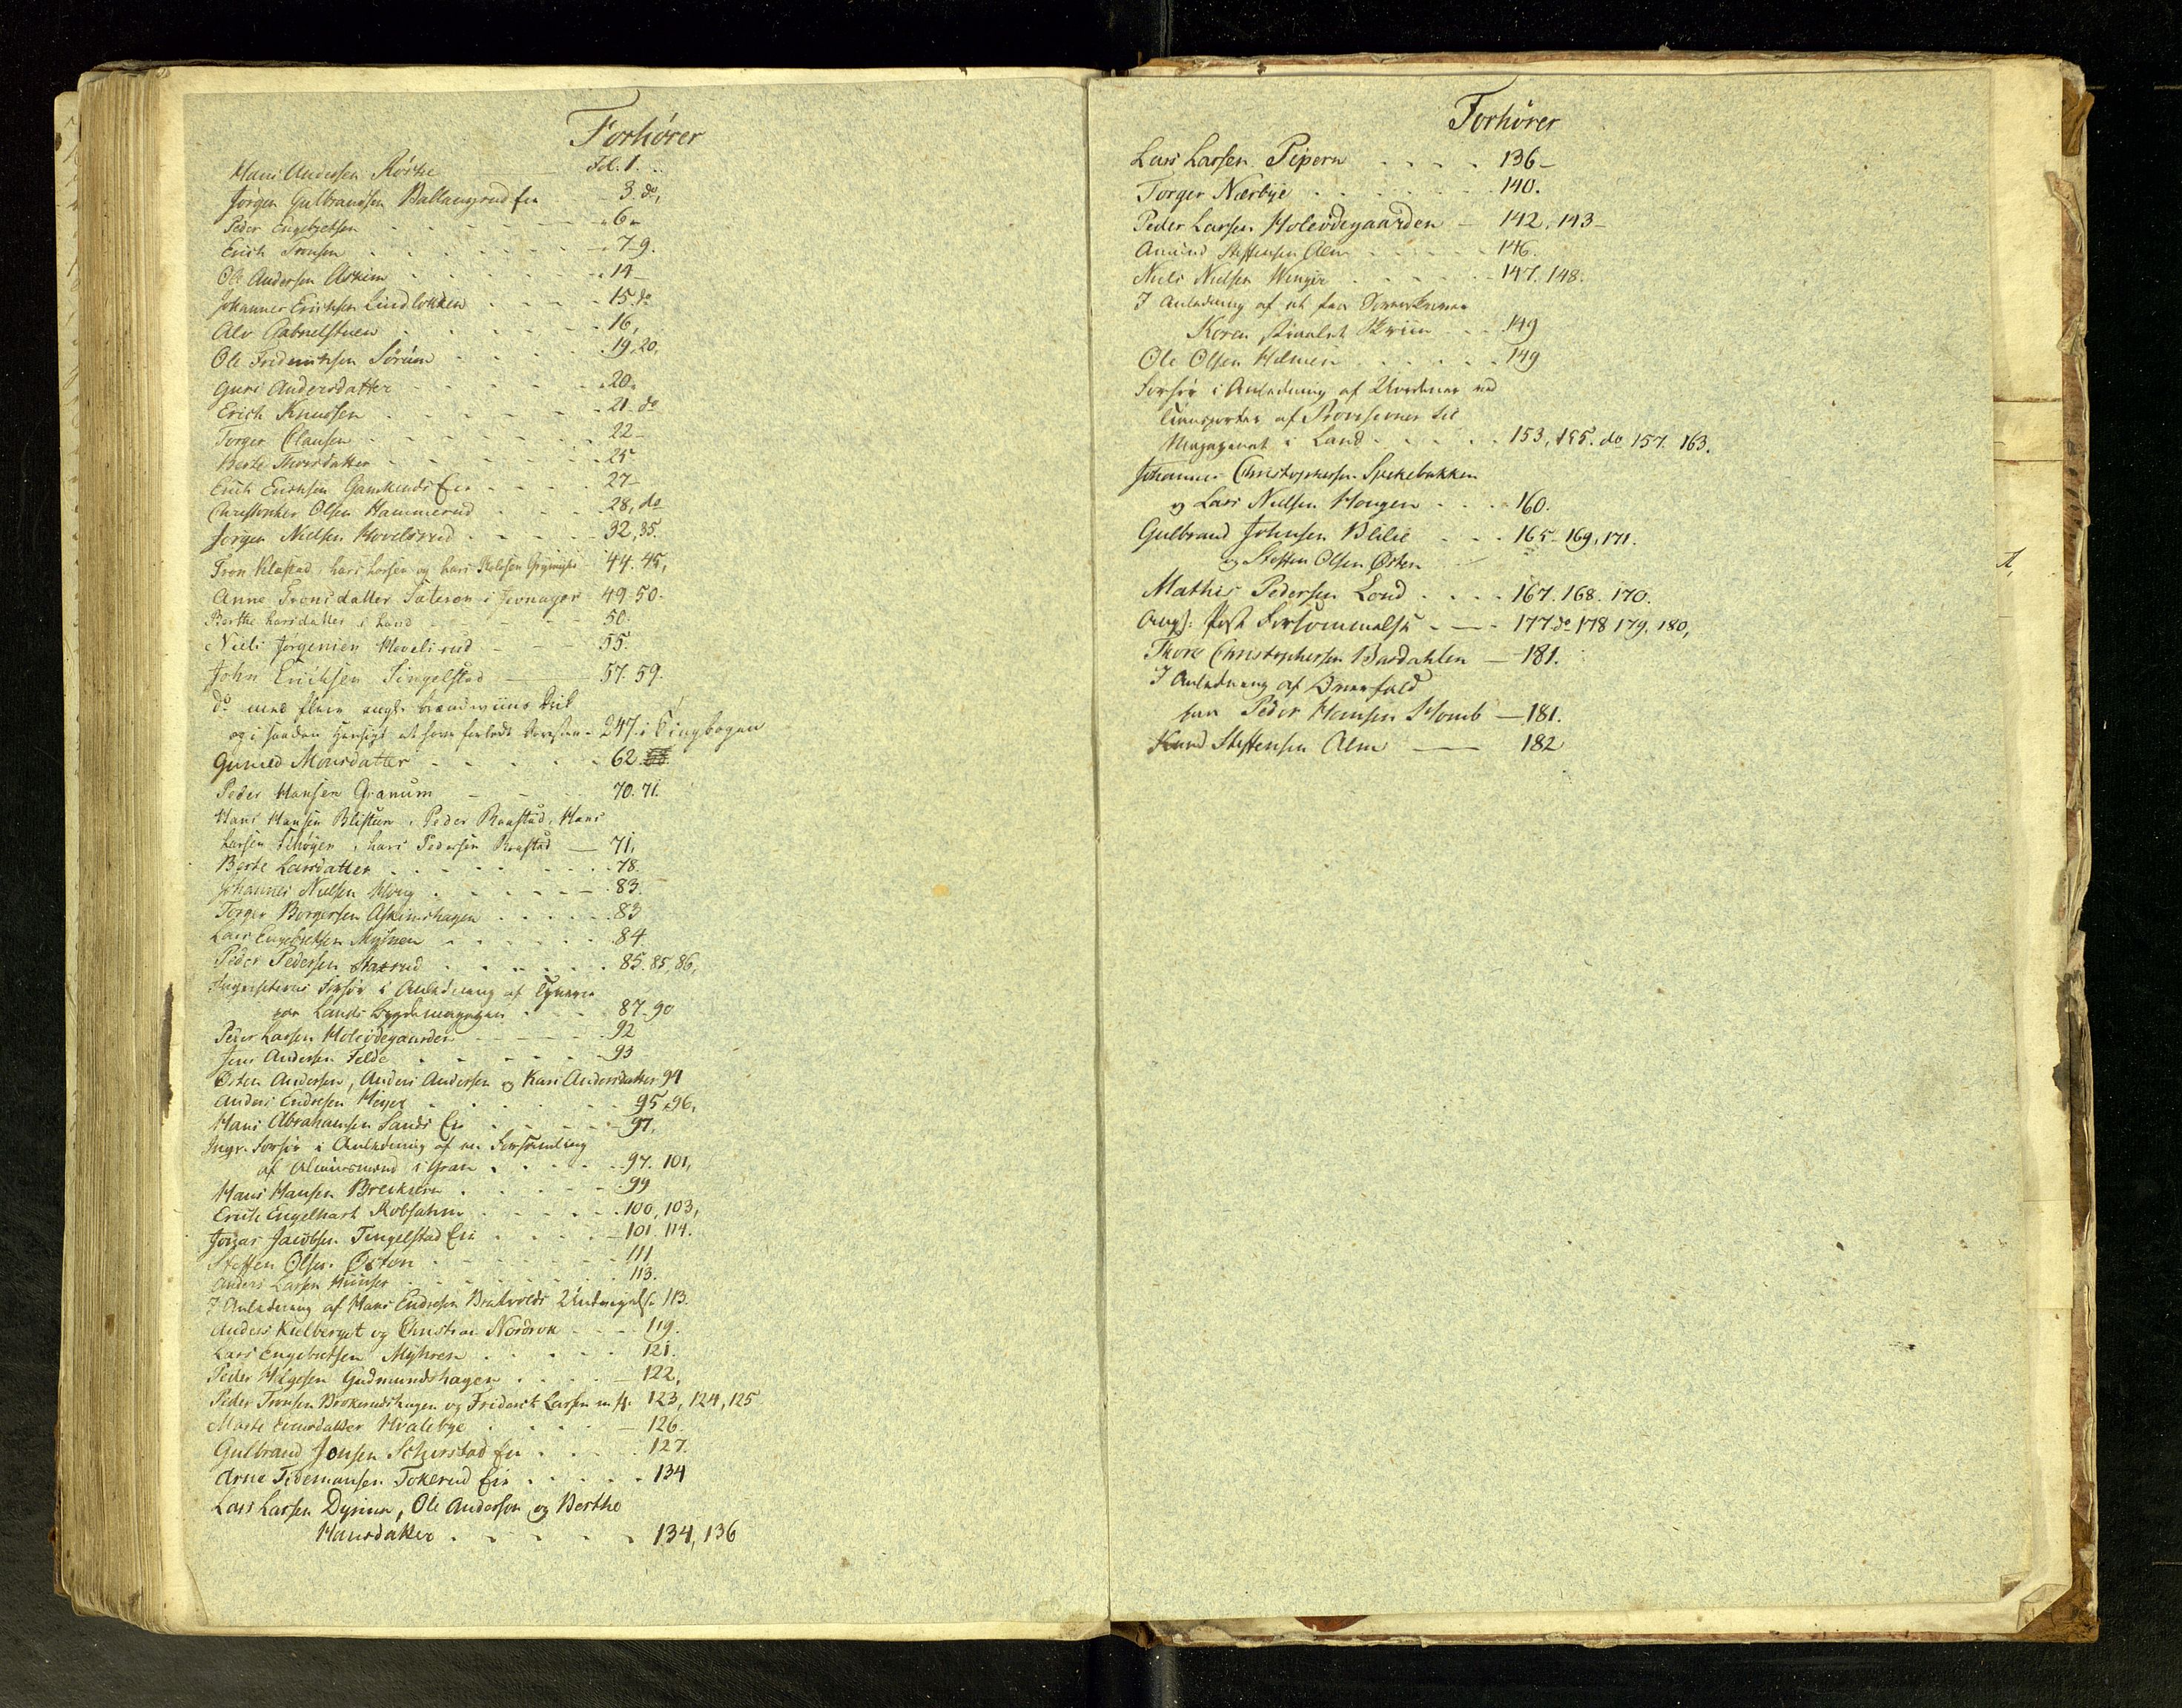 Forhörer
Hans Andersen Röiske Fol. 1.
Jörgen Gulbrandsen Ballangrud Eie 3 do,
Peder Engebretsen 6
Erich Tronsen 7-9.
Ole Andersen Askim 14
Johannes Erichsen Lindlökken 15. do
Alv Gabrielstuen 16,
Ole Friderichsen Sörum 19, 20,
Guri Andersdatter 20.
Erich Knudsen 21. do
Torger Clausen 22-
Berthe Thorsdatter 25
Erich Erichsen Gamkinds Eie 27-
Christopher Olsen Hammerud 28, do
Jörgen Nielsen Hovelsrud 32, 35.
Tron Klæstad, Lars Larsen og Lars 44. 45,
Anne Tronsdatter Sateren i Jevnager 49-50.
Berthe Larsdatter i Land 50.
Niels Jörgensen Hovelsrud 55.
John Erichsen Tingelstad 57. 59.
do med flere angl. Brændeviins
og i 247 i Tingbogen
Gunild Monsdatter 62.
Peder Hansen Granum 70. 71.
Hans Hansen Blistuen, Peder Raastad, Hans
Larsen Schöyen, Lars Pedersen Raastad 71,
Berte Larsdatter 78.
Johannes Nielsen Houg 83.
Torger Borgersen Askimshagen 83
Lars Engebretsen Myhren 84.
Peder Pedersen Staxrud 85. 85, 86,
Forhör i Anledning af Tyverie
paa Lands Bygdemagazin 87-90
Peder Larsen Holeödegaarden 92
Jens Andersen Felde 93
Östen Andersen, Anders Andersen og Kari Andersdatter 94
Anders Endresen Heyer 95, 96,
Hans Abrahamsen Sands Eie 97,
Forhör i Anledning af en Forsamling
af Almuesmænd i Gran 97. 101,
Hans Hansen Brecksern 99
Erich Engelhart Robsahm 100, 103,
Jörgen Jacobsen Tingelstad Eie 101. 114.
Steffen Olsen Östen 111
Anders Larsen 113.
I Anledning af Hans Endresen Brakvolds Undvigelse 113.
Anders Kielberget og Christian Nordvok 119.
Lars Engebretsen Myhren 121.
Peder Helgesen Gudmundshagen 122,
Peder Tronsen Brokerudshagen og Friderich Larsen m. fl. 123, 124, 125
Marte Hvalebye 126.
Gulbrand Jonsen Schierstad Eie 127.
Arne Tidemansen Tokerud Eie 134
Lars Larsen Dynna, Ole Andersen og Berthe
Hansdatter 134, 136
Forhörer
Lars Larsen Pipern 136-
Torger Nærbye 140.
Peder Larsen Holeödegaarden 142, 143-
Amund Steffensen Alm 146.
Niels Nielsen Wenger 147. 148.
I Anledning af et fra Sorenskriver
Koren stiaalet Skriin 149
Ole Olsen Holmen 149
Forhör i Anledning af Uordener ved
Transporter af Provisioner til
Magazinet i Land 153, 155. do 157. 163.
Johannes Christophersen Spekebakken
og Lars Nielsen Hougen 160.
Gulbrand Johnsen Blilie 165-169, 171.
og Steffen Olsen Östen
Mathis Pedersen Lond 167. 168. 170.
Ang: Post Forsömmelse 177 do 178 179, 180,
Thore Christophersen Bardahlen 181.
I Anledning af Overfald
paa Peder Hansen Homb 181.
Knud Steffensen Alm 182